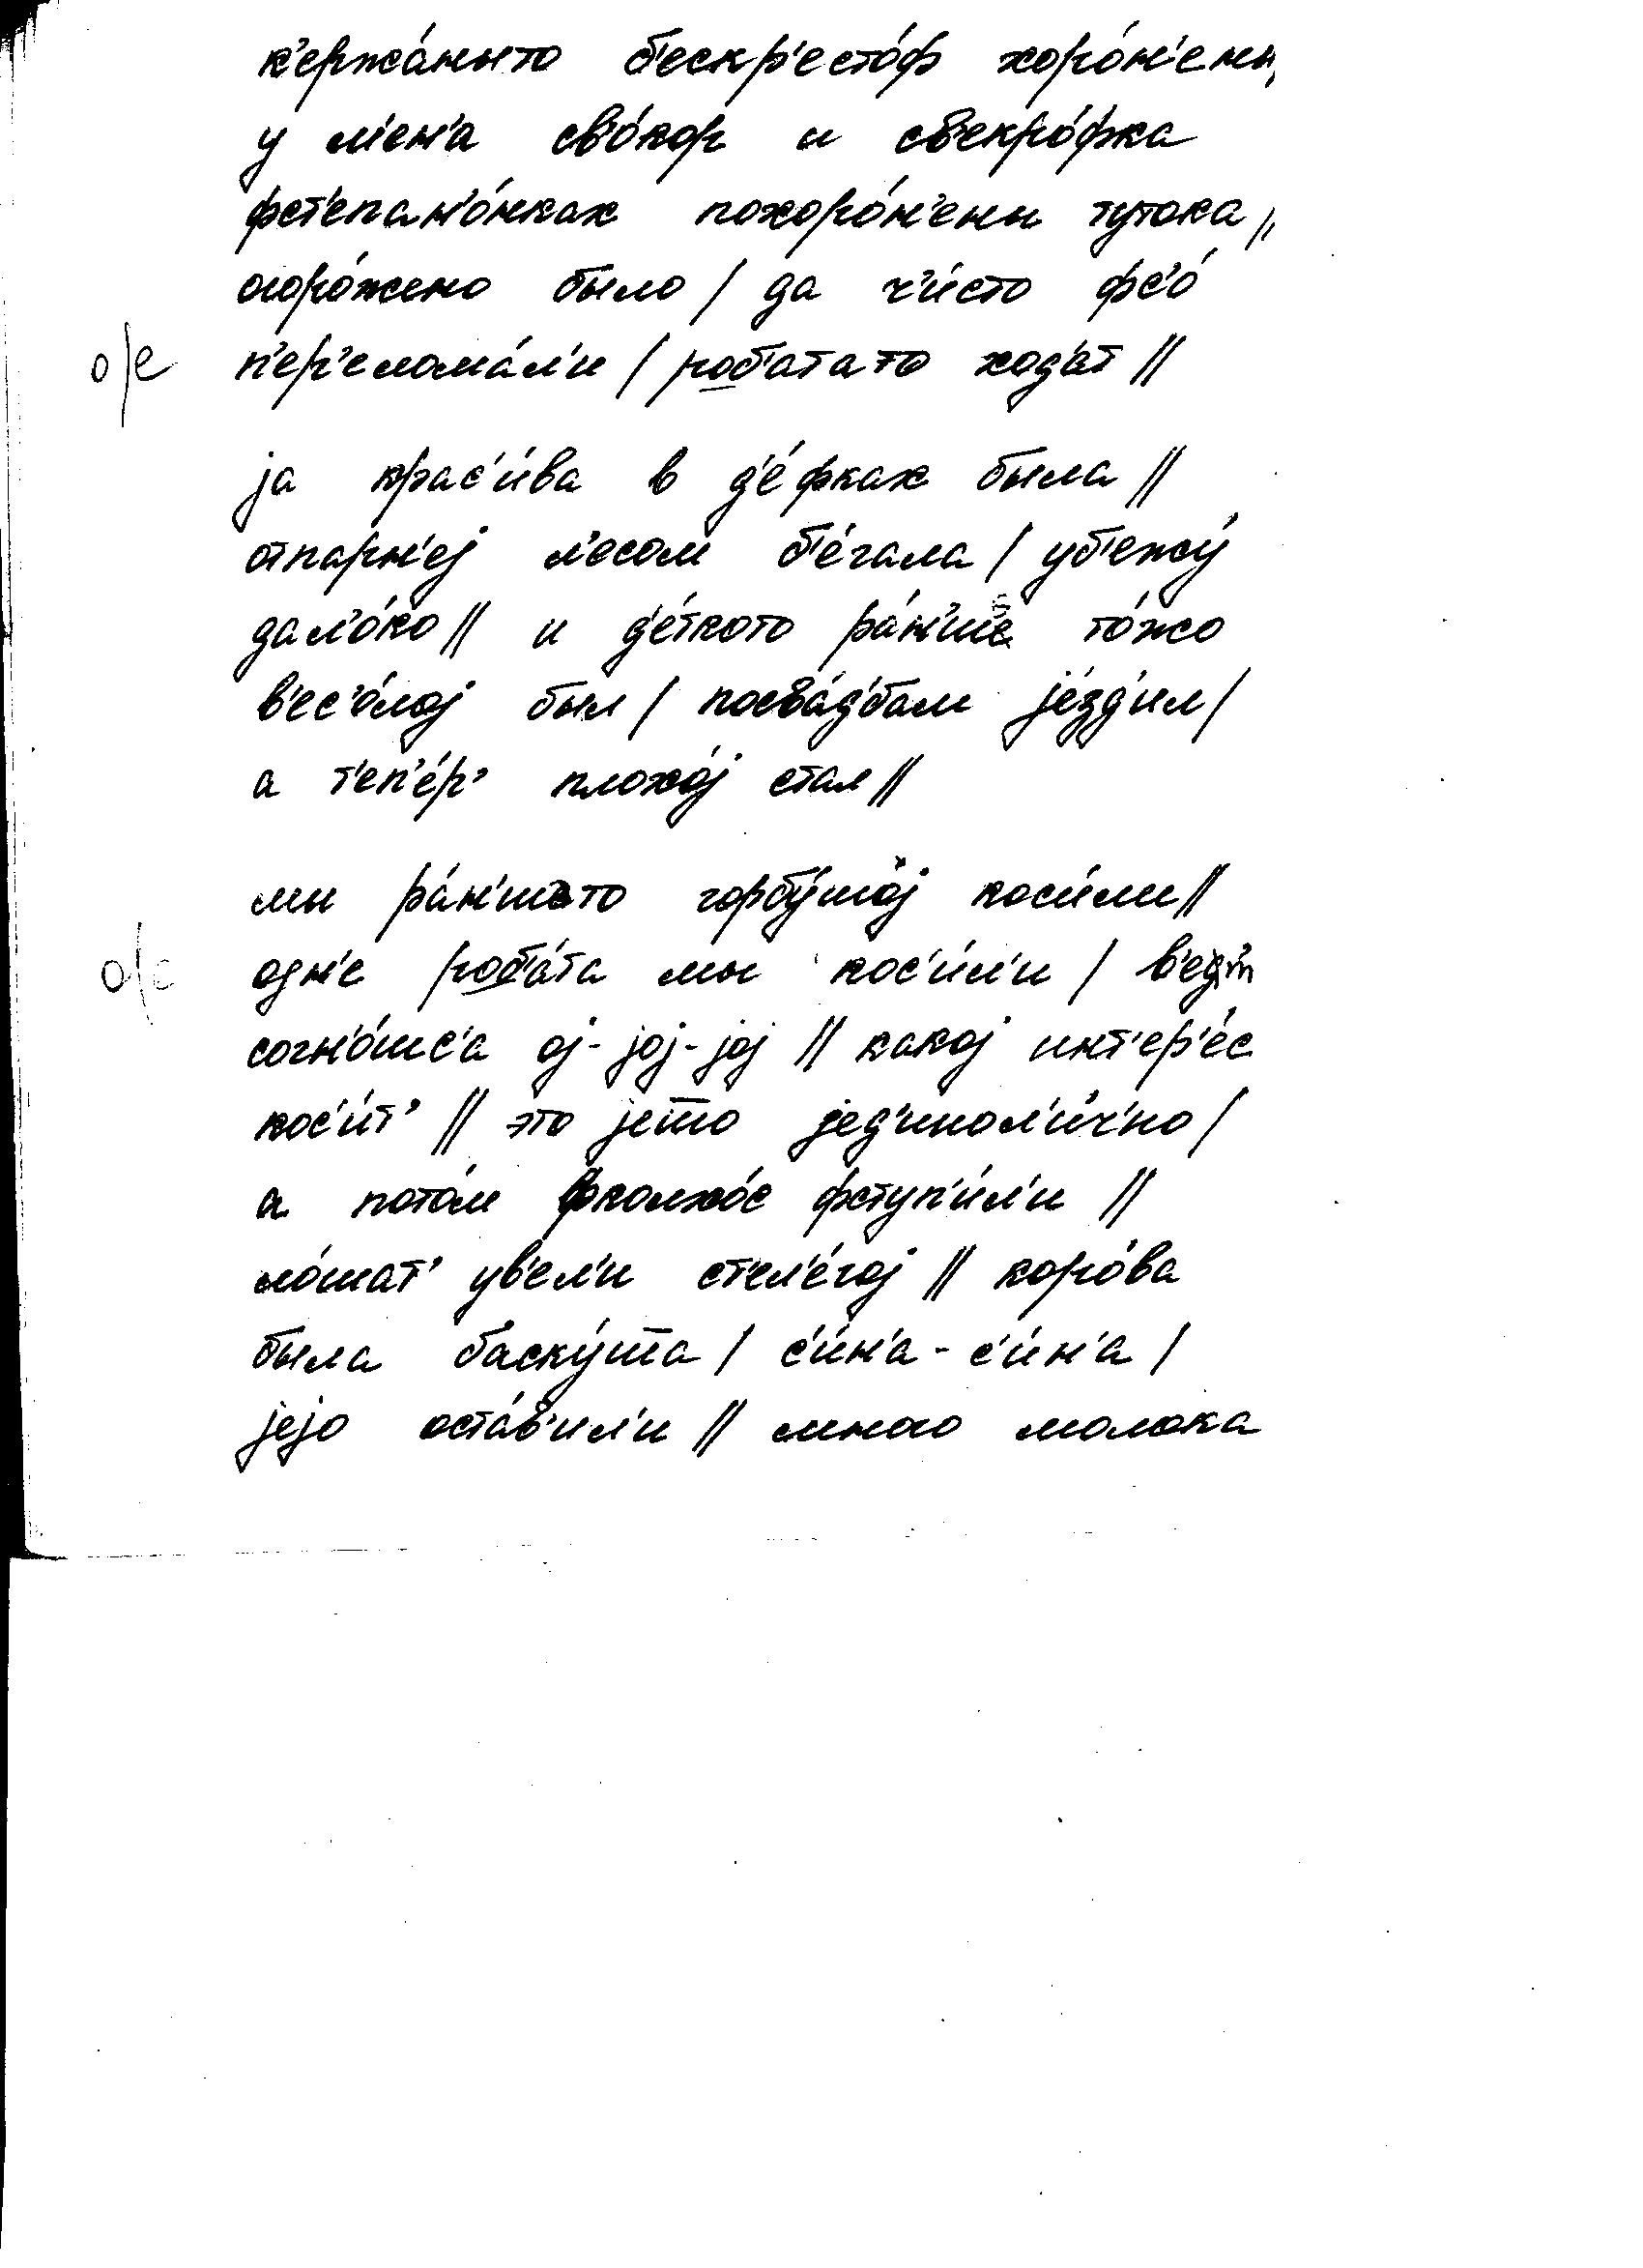 к'ержа́ныто б'ескр'есто́ф хоро́н'ены,
у м'ен'а св'о́кор и св'екро́фка
фст'епан'о́нках похоро́н'ены тутока //
огоро́жено было / да ч'и́сто фс'о́
о/е п'ер'елома́л'и / роб'атато ход'ат //
ја крас'и́ва в д'е́фках была //
отпарн'еј л'есом б'е́гала / уб'ежу́
дал'о́ко // и д'е́ткото ра́н'ше то́жо
в'ес'о́лој был / посва́д'бам је́зд'ил /
а т'еп'е́р' плохо́ј стал //
мы ра́н'шето горбу́шој коси́ли //
о/е одн'е роб'а́та мы кос'и́л'и /
согн'о́шс'а ој-јој-јој // какој инт'ер'е́с
кос'и́т' // это јешо јед'инол'и́ч'но /
а пото́м фколхо́с фступ'и́л'и //
ло́шат' ув'ел'и ст'ел'е́гој // коро́ва
была баску́шша / с'и́н'а-с'и́н'а /
јејо оста́в'ил'и // много молока